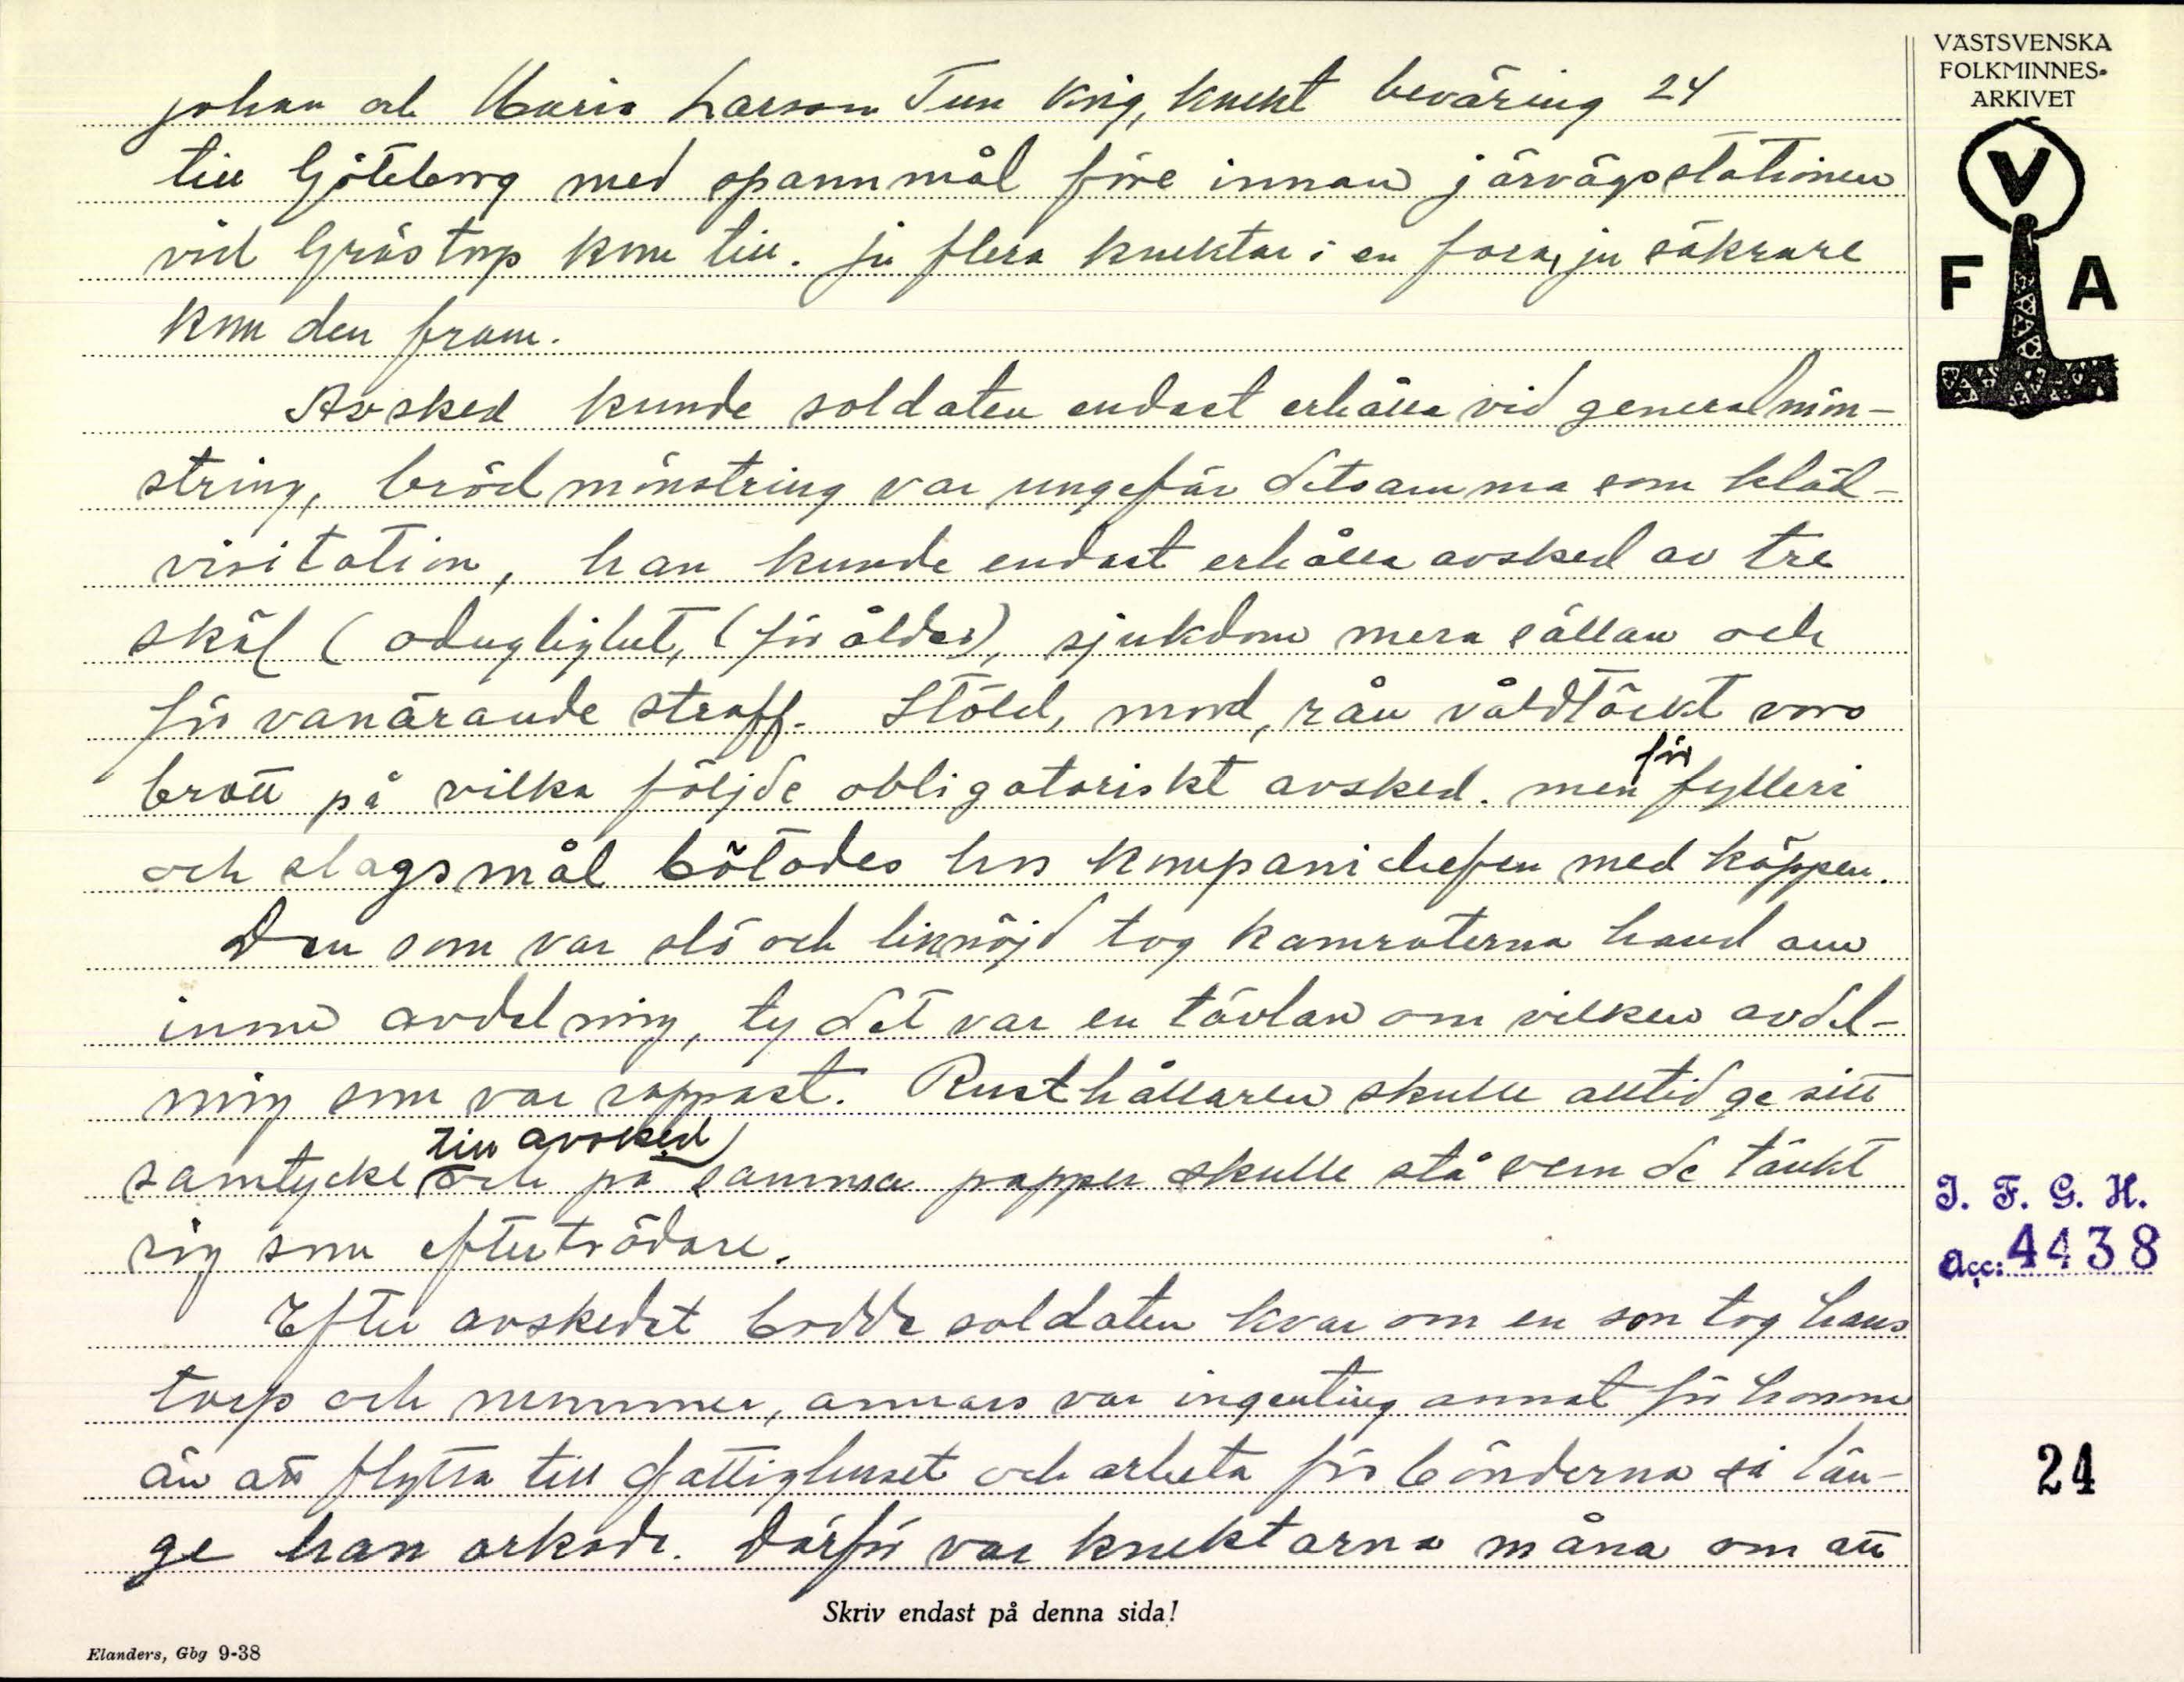 johan och Maria Larsson Tun Krig, knekt beväring 24
till Göteborg med spannmål före innan järvägsstationen
vid Grästorp kom till. ju flera knektar i en fora, ju säkrare
kom den fram.
Avsked kunde soldaten endast erhålla vid generalmön-
string, brödmönstring var ungefär detsamma som kläd-
visitation, han kunde endast erhålla avsked av tre
skäl (oduglighet, (för ålder), sjukdom mera sällan och
för vanärande straff. Stöld, mord, rån våldtäckt voro
brott på vilka följde obligatoriskt avsked. men för fylleri
och slagsmål bötades hos kompanichefen med käppen.
Den som var slö och liknöjd tog kamraterna hand om
inom avdelning, ty det var en tävlan om vilken avdel-
ning som var rappast. Rusthållaren skulle alltid ge sitt
samtycke till avsked och på samma papper skulle stå vem de tänkt
sig som efterträdare.
Efter avskedet bodde soldaten kvar om en son tog hans
torp och nummer, annars var ingenting annat för honom
än att flytta till fattighuset och arbeta för bönderna så län-
ge han orkade. Därför var knektarna måna om att
Skriv endast på denna sida!
Elanders, Gbg 9-38
VÄSTSVENSKA
FOLKMINNES-
ARKIVET
V
F A
I. F. G. H.
Acc: 4438
24